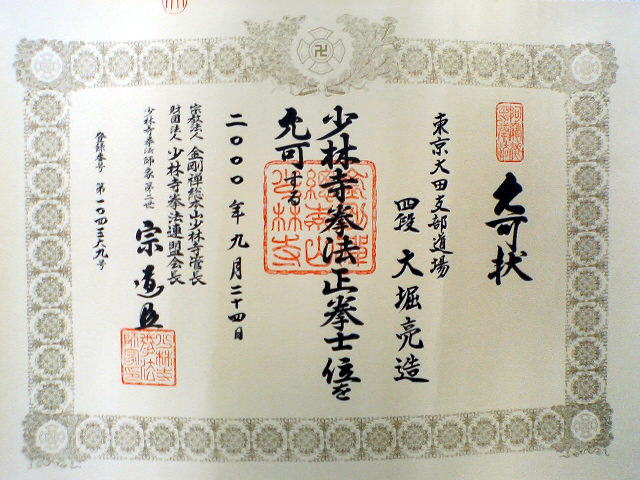 允可状
東京大田支部道場
四段 大堀亮造
少林寺拳法正拳士位を
允可する
二〇〇〇年九月二十四日
宗教法人 金剛禅総本山少林寺管長
財団法人 少林寺拳法連盟会長
少林寺拳法師家第二世
宗道臣
登録番号 第一〇四三六九号
金剛禅
総本山
少林寺